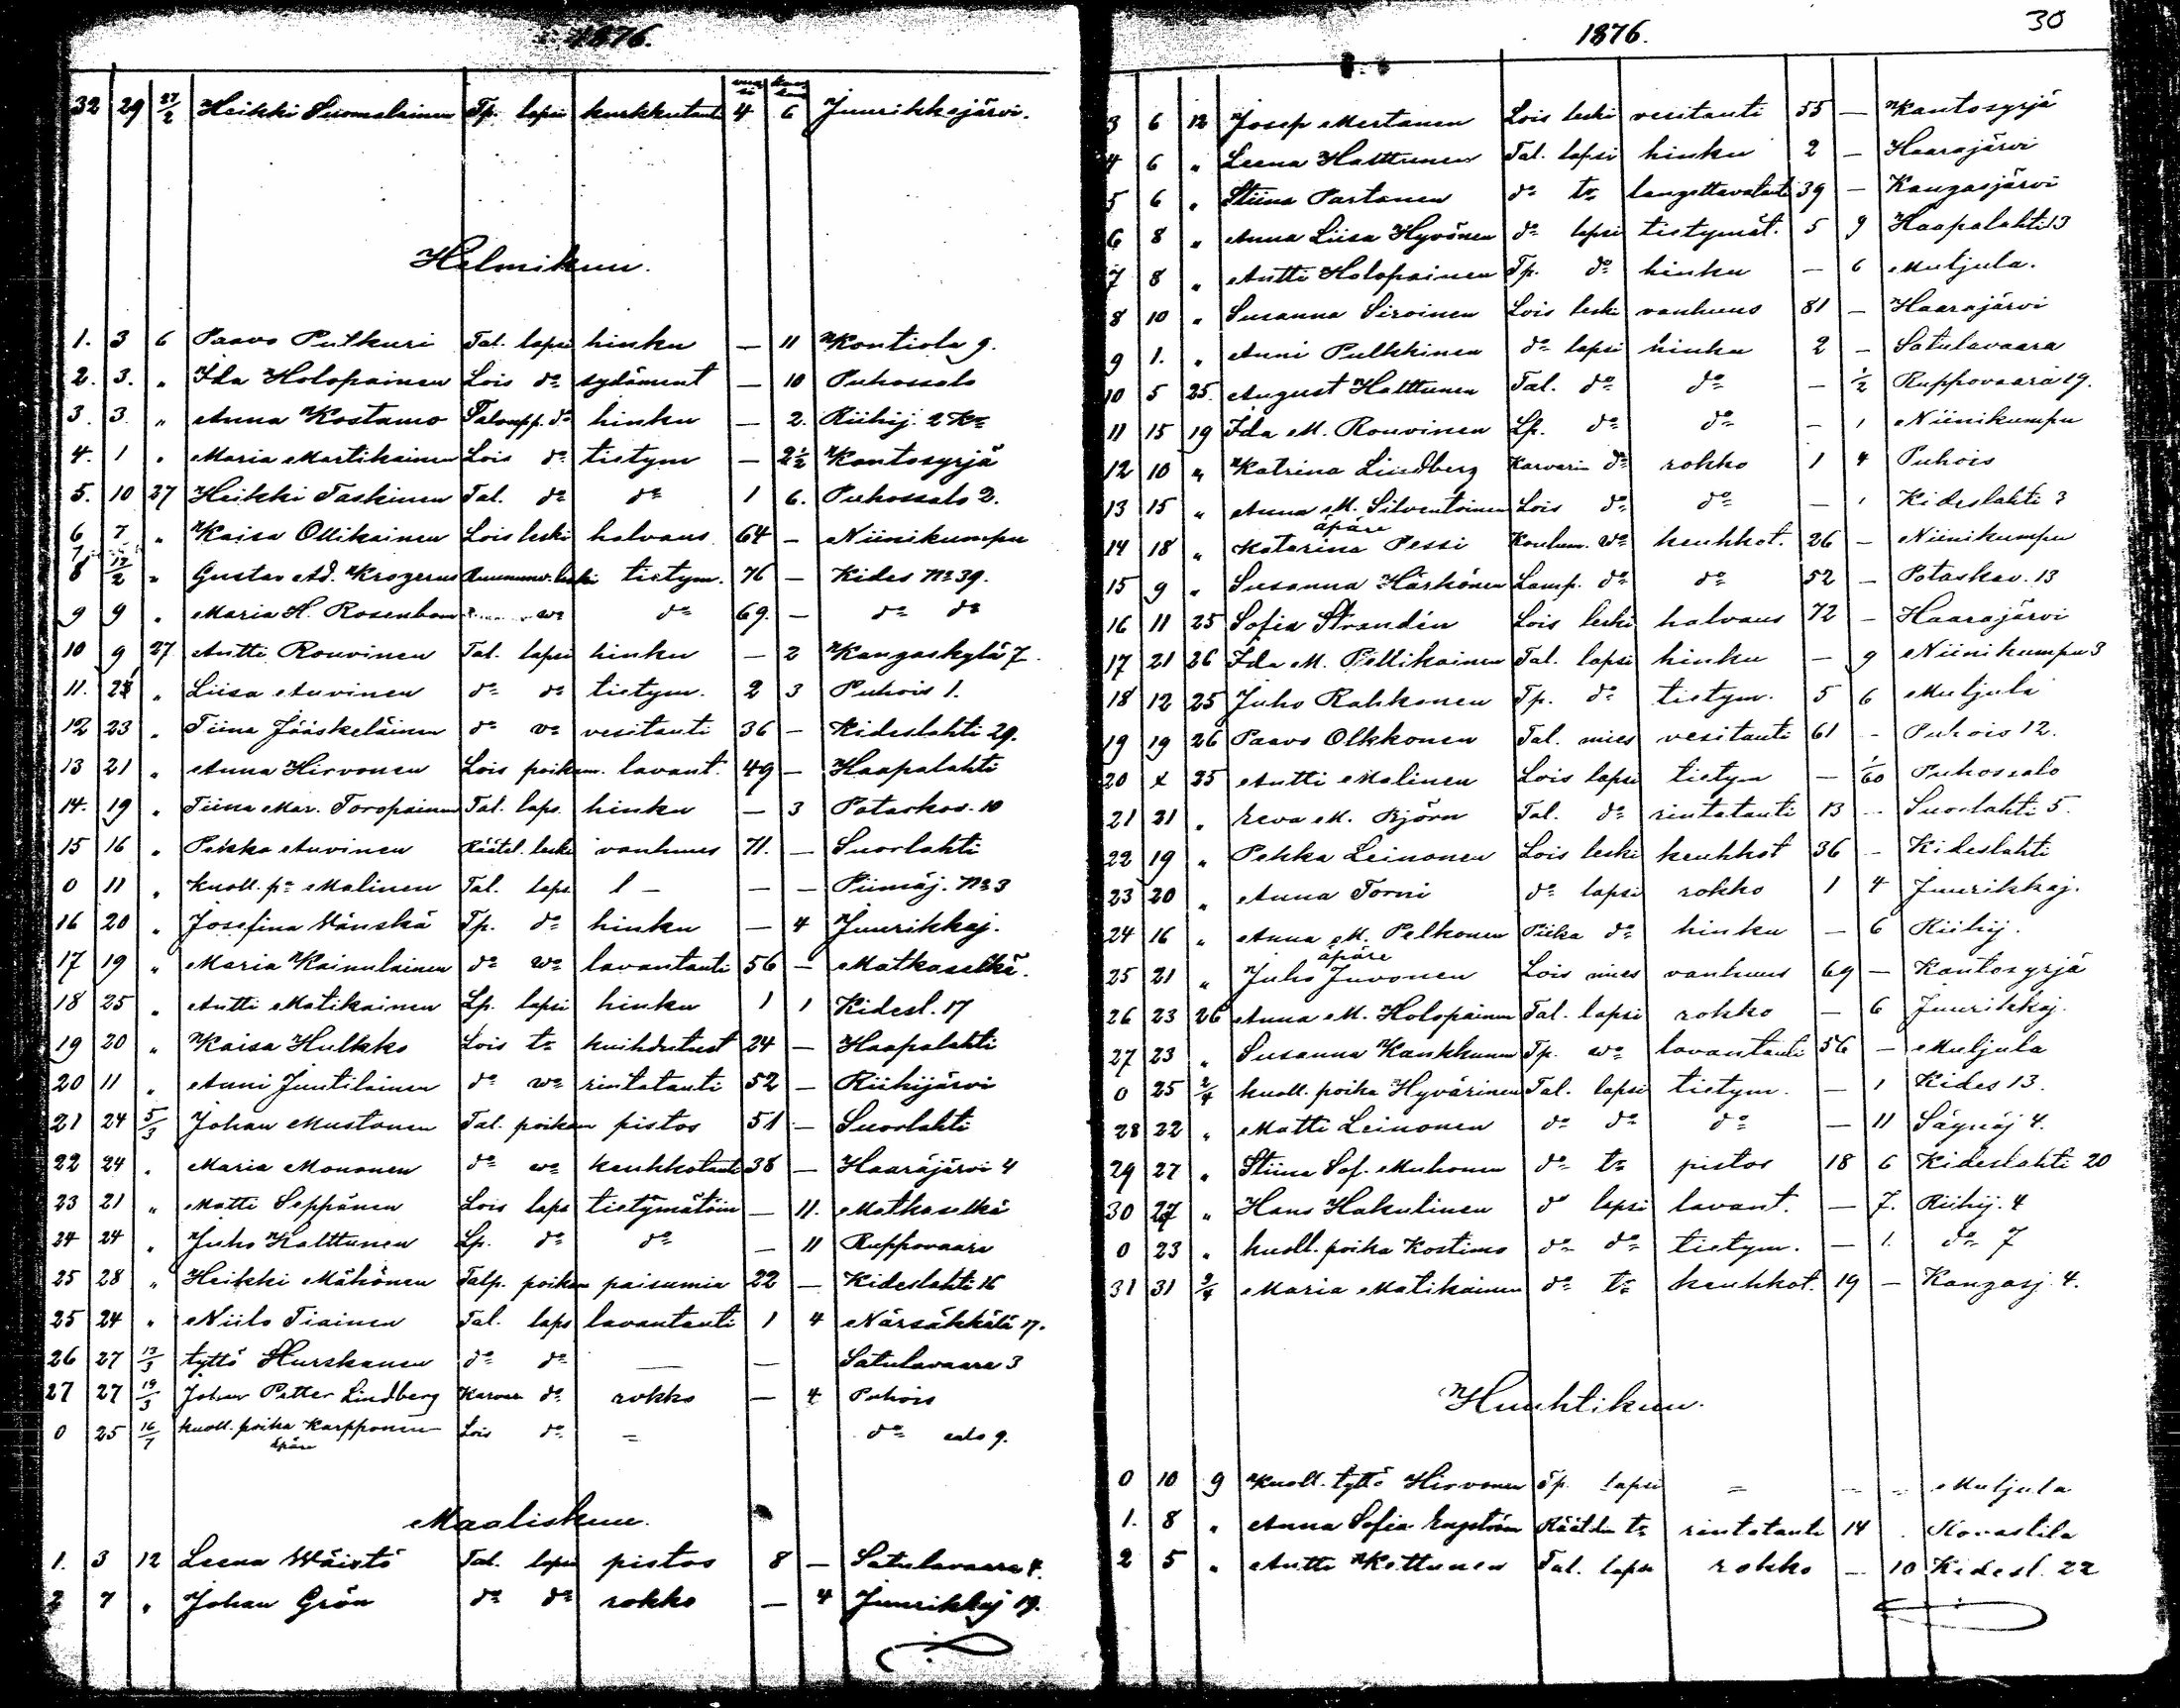 1876.
vuosi kuukausi
32 29 27/2 Heikki Suomalainen Tp. lapsi kurkkutauti 4 6 Juurikkajärvi.
Helmikuu.
1. 3 6 Paavo Putkuri Tal. lapsi hinku — 11 Kontiola 9.
2. 3. „ Ida Holopainen Lois do sydäment — 10 Puhossalo
3. 3. „ Anna Kostamo Talonpp. do hinku — 2. Riihij. 2
4. 1 „ Maria Martikainen Lois do tietym — 2½ Kontosyrjä
5. 10 27 Heikki Taskinen Tal. do do 1 6. Puhossalo 2.
6 7 „ Kaisa Ollikainen Lois leski halvaus 64 — Niinikumpu
7
8 12/2 „ Gustav Ad. Krogerus leski tietym. 76 — Kides No 39.
9 9 „ Maria H. Rosenbom wo do 69. — do do
10 9 27 Antti Rouvinen Tal. lapsi hinku — 2 Kangaskylä 7.
11. „ Liisa Auvinen do do tietym. 2 3 Puhois 1.
12 23 „ Tiina Jääskeläinen do vo vesitauti 36 — Kideslahti 29.
13 21 „ Anna Hirvonen Lois poikam. lavant. 49 — Haapalahti
14. 19 „ Tiina Mar. Toropainen Tal. laps. hinku — 3 Potaskav. 10
15 16 „ Pekka Auvinen Räätel. leski vanhuus 71. — Suorlahti
0 11 „ Kuoll. po Malinen Tal. laps. l — — — Piimäj. No 3
16 20 „ Josefina Vänskä Tp. do hinku — 4 Juurikkaj.
17 19 „ Maria Kainulainen do wo lavantauti 56 — Matkaselkä.
18 25 „ Antti Matikainen Lp. lapsi hinku 1 1 Kidesl. 17
19 20 „ Kaisa Hulkko Lois to kuihdutust 24 — Haapalahti
20 11 „ Anni Juutilainen do wo rintatauti 52 — Riihijärvi
21 24 5/3 Johan Mustonen Tal. poikam pistos 51 — Suorlahti
22 24 „ Maria Mononen do wo keuhkotauti 38 — Haarajärvi 4
23 21 „ Matti Seppänen Lois laps tietymätöin — 11. Matkaselkä
24 24 „ Juho Halttunen Lp. do do — 11 Ruppovaara
25 28 „ Heikki Mähönen Talp. poikam paisumia 22 — Kideslahti 16
25 24 „ Niilo Tiainen Tal. laps lavantauti 1 4 Närsäkkälä 17.
26 27 13/3 tyttö Hurskanen do do — — Satulavaara 3
27 27 19/3 Johan Petter Lindberg Karvar. do rokko — 4 Puhois
0 25 16/7 kuoll. poika Karpponen Lois do = do salo 9.
äpäre
Maaliskuu.
1. 3 12 Leena Wäistö Tal. lapsi pistos 8 — Satulavaara 4.
2 7 „ Johan Grön do do rokko — 4 Juurikkaj 19.
1876. 30
3 6 12 Josep Mertanen Lois leski vesitauti 55 — Kantosyrjä
4 6 „ Leena Halttunen Tal. lapsi hinku 2 — Haarajärvi
5 6 „ Stiina Partanen do to langettavatauti 39 — Kangasjärvi
6 8 „ Anna Liisa Hyvönen do lapsi tietymät. 5 9 Haapalahti 13
7 8 „ Antti Holopainen Tp. do hinku — 6 Muljula.
8 10 „ Susanna Siroinen Lois leski vanhuus 81 — Haarajärvi
9 1. „ Anni Pulkkinen do lapsi hinku 2 — Satulavaara
10 5 25. August Halttunen Tal. do do — ½ Ruppovaara 19.
11 15 19 Ida M. Rouvinen Lp. do do — 1 Niinikumpu
12 10 „ Katrina Lindberg Karvarin do rokko 1 4 Puhois
13 15 „ Anna M. Silventoinen Lois do do — 1 Kideslahti 3
äpäre
14 18 „ Katarina Pessi Koulum. wo keuhkot. 26 — Niinikumpu
15 9 „ Susanna Härkönen Lamp. do do 52 — Potaskav. 13
16 11 25 Sofia Strandén Lois leski halvaus 72 — Haarajärvi
17 21 26 Ida M. Pellikainen Tal. lapsi hinku — 9 Niinikumpu 3
18 12 25 Juho Rahkonen Tp. do tietym. 5 6 Muljula
19 19 26 Paavo Olkkonen Tal. mies vesitauti 61 — Puhois 12.
20 x 25 Antti Malinen Lois lapsi tietym — 1/60 Puhossalo
21 21 „ Eeva M. Björn Tal. do rintatauti 13 — Suorlahti 5.
22 19 „ Pekka Leinonen Lois leski keuhkot 36 — Kideslahti
23 20 „ Anna Torni do lapsi rokko 1 4 Juurikkaj.
24 16 „ Anna M. Pelkonen Piika do hinku — 6 Riihij.
äpäre
25 21 „ Juho Juvonen Lois mies vanhuus 69 — Kantosyrjä
26 23 26 Anna M. Holopainen Tal. lapsi rokko — 6 Juurikkaj.
27 23 „ Susanna Kankkunen Tp. wo lavantauti 56 — Muljula
0 25 2/4 kuoll. poika Hyvärinen Tal. lapsi tietym. — 1 Kides 13.
28 22 „ Matti Leinonen do do do — 11 Säynäj 4.
29 27 „ Stiina Sof. Muhonen do to pistos 18 6 Kideslahti 20
30 27 „ Hans Hakulinen do lapsi lavant. — 7. Riihij. 4
0 23 „ kuoll. poika Kostimo do do tietym. — 1. do 7
31 31 2/4 Maria Matikainen do to keuhkot. 19 — Kangasj. 4.
Huuhtikuu.
0 10 9 Kuoll. tyttö Hirvonen Tp. lapsi = — = Muljula
1. 8 „ Anna Sofia Engström Räätälin to rintatauti 14 .
2 5 „ Antti Kettunen Tal. lapsi rokko — 10 Kidesl. 22